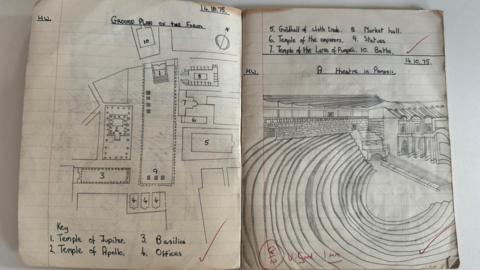 H.W.
14.10.75.
GROUND PLAN OF THE FORUM
10
N
1
8
2
7
6
5
3
9
4 4 4
Key
1. Temple of Jupiter. 3. Basilica
2. Temple of Apollo. 4. Offices
5. Guildhall of cloth trade. 8. Market hall.
6. Temple of the emperors. 9. Statues
7. Temple of the Lares of Pompeii. 10. Baths.
14.10.75.
H.W.
A theatre in Pompeii.
V. Good 1 mm